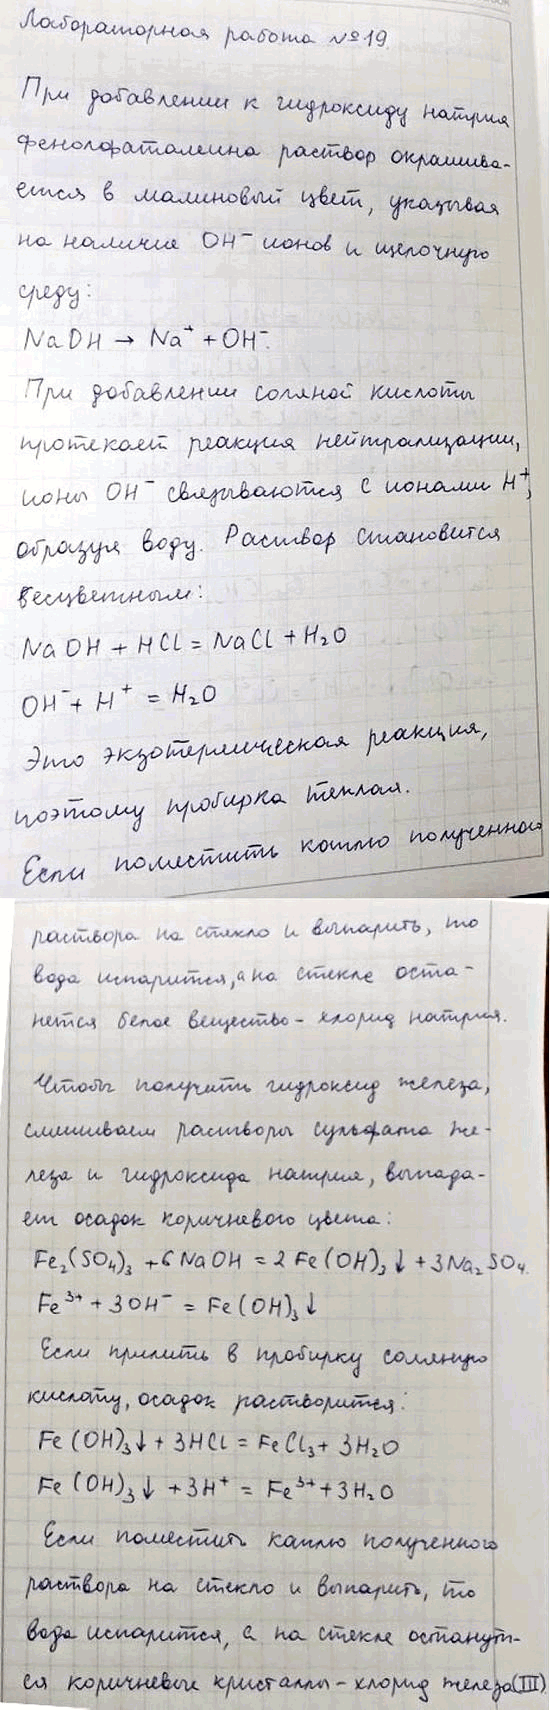 Лабораторная работа №19.
При добавлении к гидроксиду натрия
фенолфталеина раствор окрашива-
ется в малиновый цвет, указывая
на наличие OH⁻ ионов и щелочную
среду:
NaOH → Na⁺ + OH⁻.
При добавлении соляной кислоты
протекает реакция нейтрализации,
ионы OH⁻ связываются с ионами H⁺,
образуя воду. Раствор становится
бесцветным:
NaOH + HCl = NaCl + H₂O
OH⁻ + H⁺ = H₂O
Это экзотермическая реакция,
поэтому пробирка теплая.
Если поместить каплю полученного
раствора на стекло и выпарить, то
вода испарится, а на стекле оста-
нется белое вещество - хлорид натрия.
Чтобы получить гидроксид железа,
смешиваем растворы сульфата же-
леза и гидроксида натрия, выпада-
ет осадок коричневого цвета:
Fe₂(SO₄)₃ + 6NaOH = 2Fe(OH)₃↓ + 3Na₂SO₄.
Fe³⁺ + 3OH⁻ = Fe(OH)₃↓
Если прилить в пробирку соляную
кислоту, осадок растворится:
Fe(OH)₃↓ + 3HCl = FeCl₃ + 3H₂O
Fe(OH)₃↓ + 3H⁺ = Fe³⁺ + 3H₂O
Если поместить каплю полученного
раствора на стекло и выпарить, то
вода испарится, а на стекле останут-
ся коричневые кристаллы - хлорид железа (III)